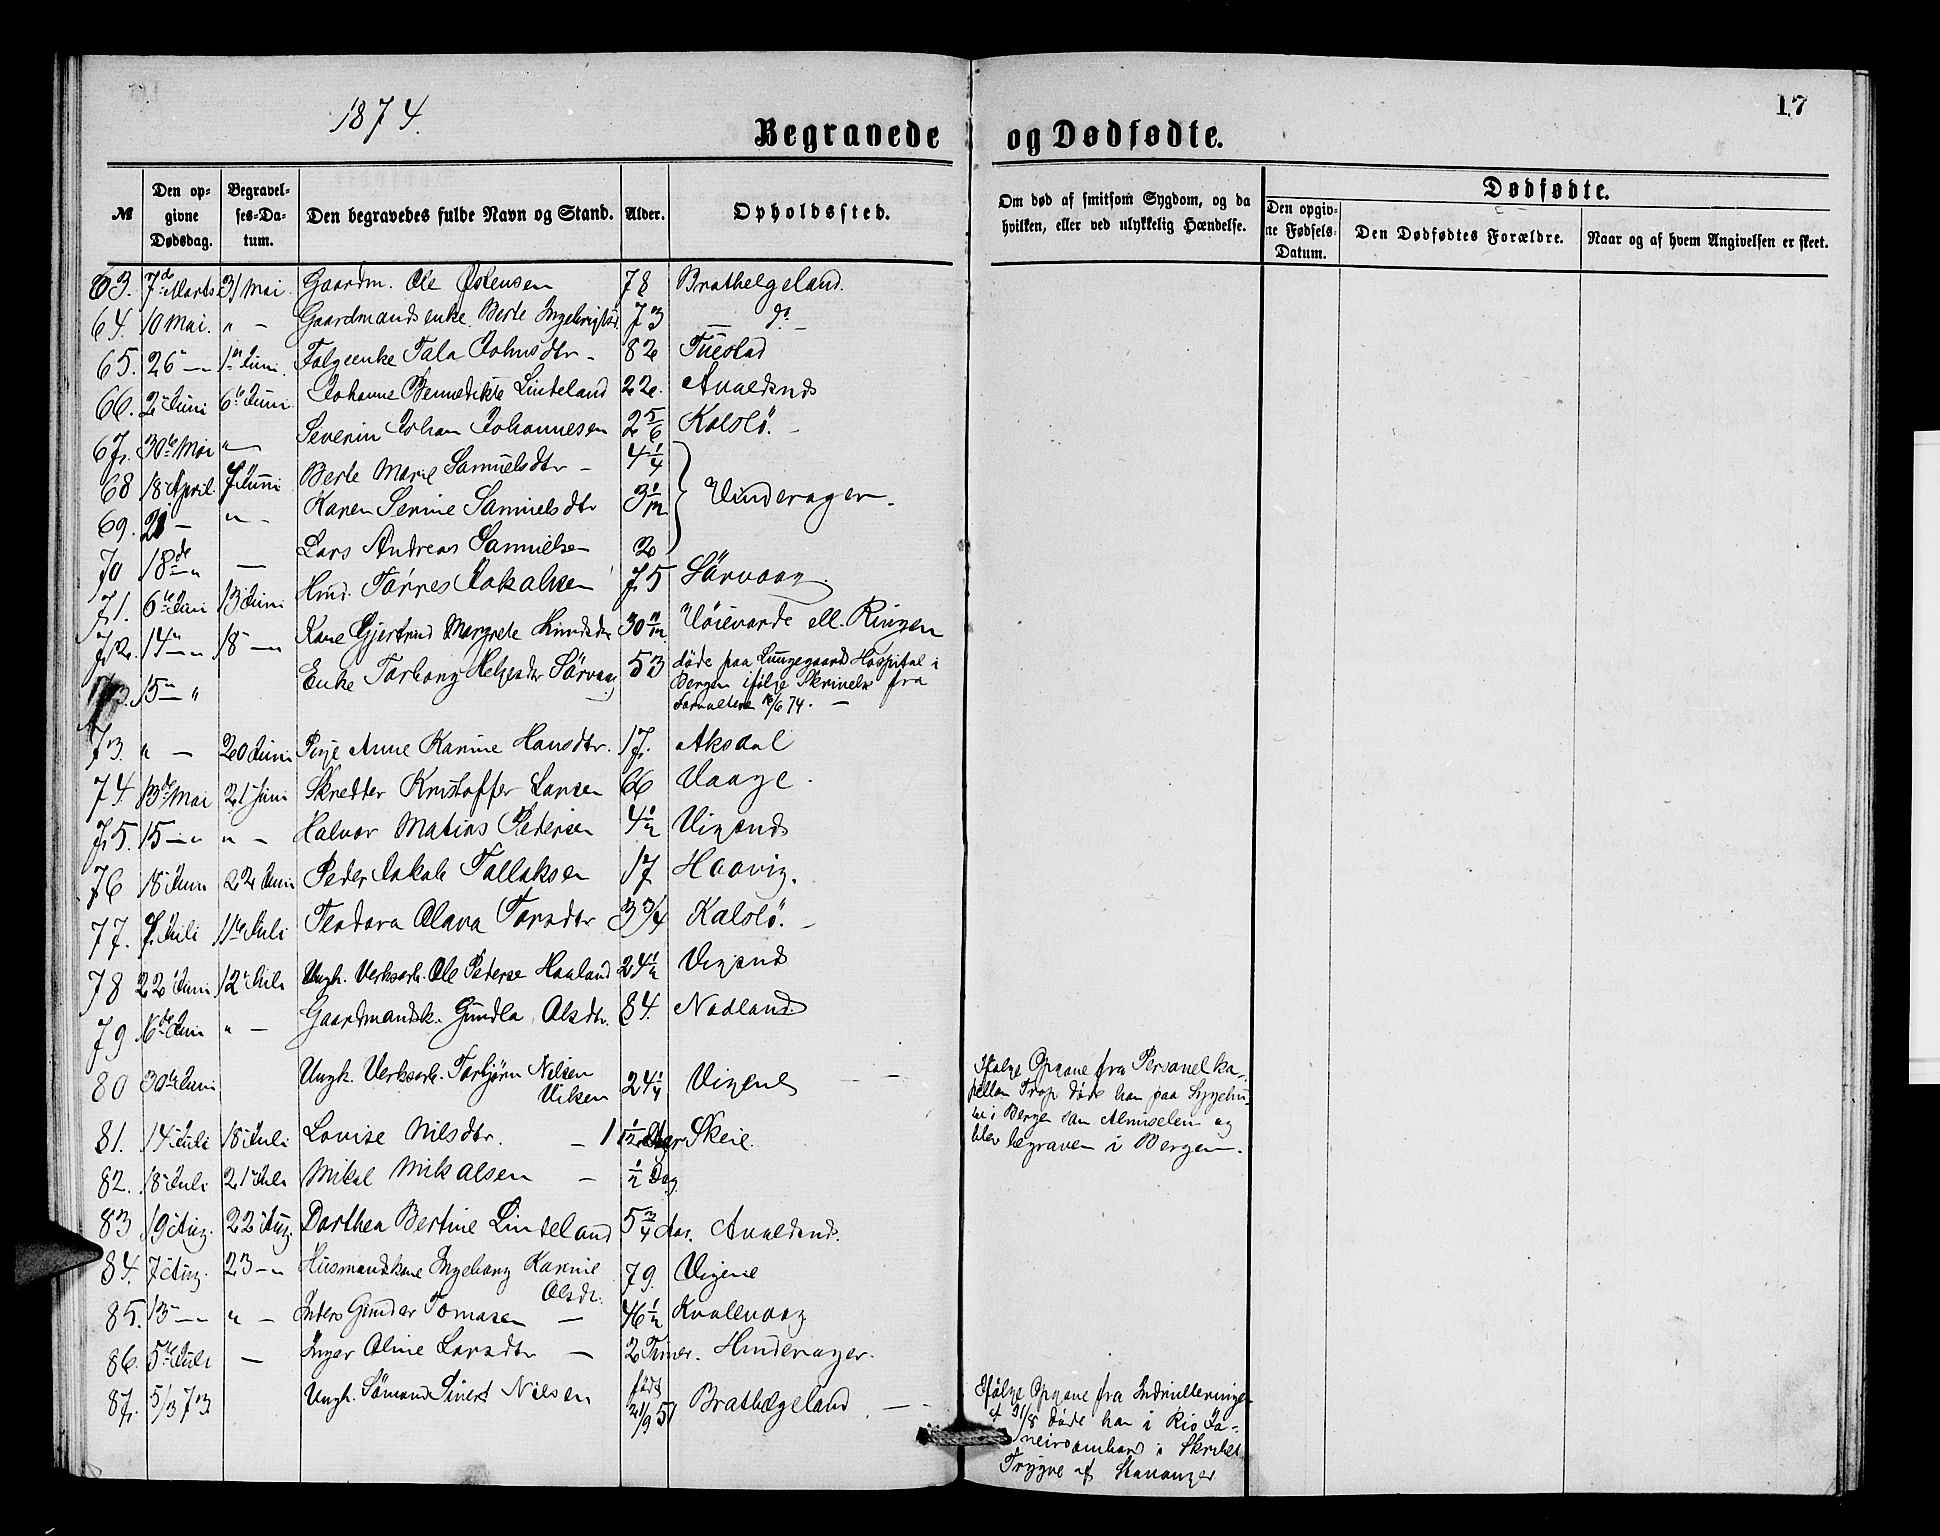 1874.
17
Begravede og Dødfødte.
№
Den opgivne Dødsdag.
Begravelses-Datum.
Den begravedes fulde Navn og Stand.
Alder.
Opholdssted.
Om død af smitsom Sygdom, og da hvilken, eller ved ulykkelig Hændelse.
Dødfødte.
Den opgivne Fødsels-Datum.
Den Dødfødtes Forældre.
Naar og af hvem Angivelsen er skeet.
63. 7de Marts 31 Mai. Gaardm. Ole Østensen 78 Brathelgeland.
64. 10 Mai. " — Gaardmandsenke Berte Ingebrigtsd. 73 — do —
65. 26 — 1ste Juni. Følgeenke Tala Johnsdtr — 82 Tuestad
66. 2 Juni 6te Juni Johanne Bennedikte Lindeland 22. Avaldsnds
67. 30te Mai " — Severin Johan Johannesen 2 5/6 Kalslö. —
68 18 April. 7 Juni Berte Marie Samuelsdtr — 4 1/4
69. 21 — " — Karen Serine Samuelsdtr 3 1/12 Vinderager —
70 18de — " — Lars Andreas Samuelsen 2
71. 6te Juni 13 Juni Hmd. Tørres Jakobsen 75 Sörvaag
72. 14 — " 18 — " Kone Gjertrud Margrete Knudsdtr 30 11/12 Høievarde ell. Ringen
73. 15 — " Enke Torborg Helgesdtr Sörvaag 53 døde paa Lungegaards Hospital i
Bergen ifølge Skrivelse fra
Forvalteren 16/6 74. —
73. " — 20 Juni Pige Anne Karine Hansdtr. 17. Aksdal
74. 13de Mai 21 Juni Skredder Kristoffer Larsen 66 Vaage.
75. 15 — " " — Halvor Matias Pedersen 4 1/2 Vigsnds
76 18 Juni 22 Juni Peder Jakob Tollaksen 17 Haavig.
77. 7 Juli 11te Juli Teodora Olava Torsdtr 3 3/4 Kalslö. —
78 22 Juni 12 Juli Ungk. Verksarb. Ole Peders Haaland 24 1/2 Vigsnds
79 16de Juni " — Gaardmandsk. Gundla Olsdtr. 84. Nodland
80 30te Juni Ungk. Verksarb. Torbjörn Nilsen
Viken 24 1/4 Vigsnes
Ifølge Opgave fra Personelka-
pellan Trop døde han paa Sygehu-
set i Bergen som Almuselem og
blev begraven i Bergen.
81. 14 Juli 18 Juli Lovise Nilsdtr. — 1 1/2 Skeie.
82. 18 Juli 21 Juli Mikal Mikalsen — 1/2 Dag
83 19 Aug. 22 Aug. Dorthea Bertine Lindeland 5 3/4 Aar. Avaldsnds.
84. 7 Aug. 23 — " Husmandskone Ingeborg Karine
Olsdr. 79. Vigsne
85. 13 — " " — Inders Gunder Tomasen — 46 1/2 Kvalevaag
86. 5te Juli — Inger Oline Larsdtr — 2 Timer. Hinderager.
87. 5/3 73 Ungk. Sömand Sivert Nilsen født
21/9 51 Brathelgeland — —
Ifølge Opgave fra Indrulleringen
af 31/8 døde han i Rio Ja-
neiro ombord i Skibet
Trygve af Stavanger